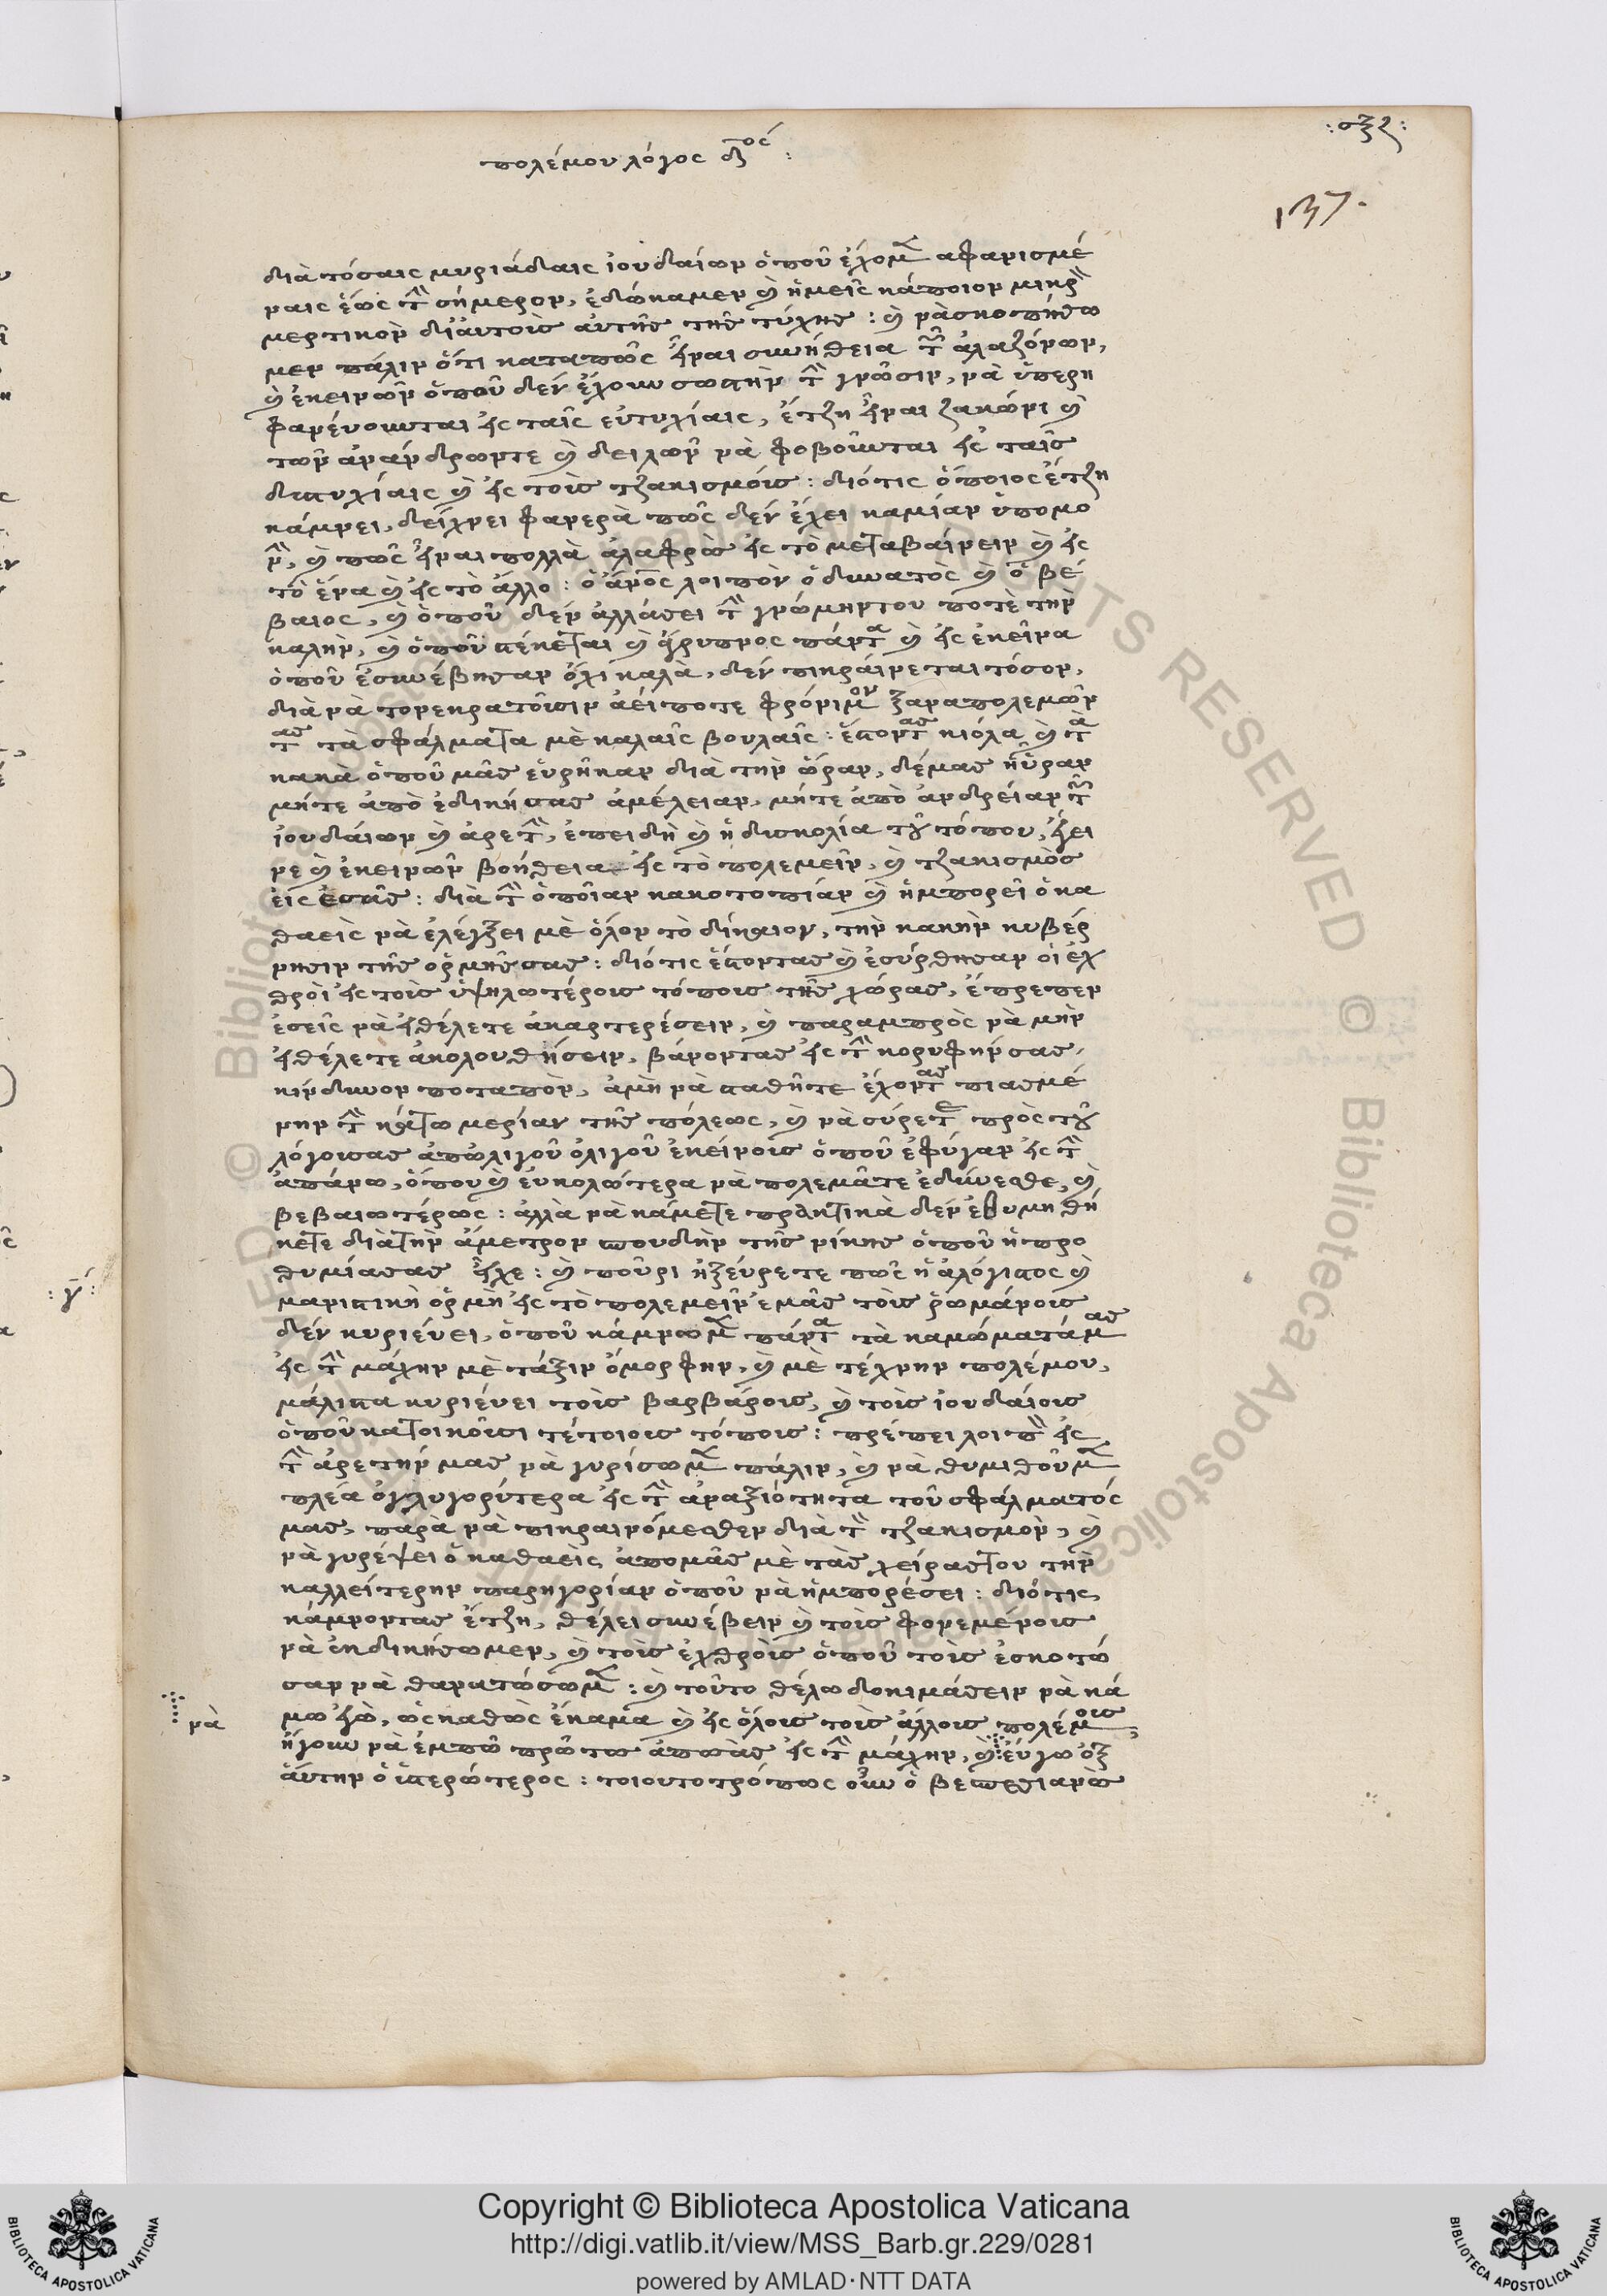 :σξζ:
πολέμου λόγος δ^ος:
137.
διὰ τόσαις μυριάδαις ἰουδαίων ὁποῦ ἔχομ̃ αφανισμέ
ναις ἕως τὴ̃ σήμερον, ἐδώκαμεν καὶ ἡμεῖς κάποιον μικρὸ̃
μερτικὸν δι' αὐτοῖς αὐτῆς τῆς τύχης: καὶ νὰ σκοπήσω
μεν πάλιν ὅτι καταπῶς εἶναι συνήθεια τῶ̃ ἀλαζόνων,
καὶ ἐκεινῶν ὁποῦ δὲν ἔχουν σωστὴν τὴ̃ γνῶσιν, νὰ ὑπερη
φανεύουνται εἰς ταῖς εὐτυχίαις, ἔτζη εἶναι ζακώνι καὶ
τῶν ἀνάνδρωντε καὶ δειλῶν νὰ φοβοῦνται εἰς ταῖς
δυστυχίαις καὶ εἰς τοὶς τζακισμοίς: διότις ὁποῖος ἔτζη
κάμνει, δείχνει φανερὰ πῶς δὲν ἔχει καμίαν ὑπομο
νὴ̃, καὶ πῶς εἶναι πολλὰ ἀλαφρὸς εἰς τὸ μεταβαίνειν καὶ εἰς
τὸ ἕνα καὶ εἰς τὸ ἄλλο: ὁ ἄνο̄ς λοιπὸν ὁ δυνατὸς καὶ ὁ βέ
βαιος, καὶ ὁποῦ δὲν ἀλλάσει τὴ̃ γνώμηντου ποτὲ τὴν
καλὴν, καὶ ὁποῦ στέκεται καὶ ἔξυπνος πάντα καὶ εἰς ἐκεῖνα
ὁποῦ ἐσυνέβησαν ὄχι καλὰ, δὲν πικραίνεται τόσον,
διὰ νὰ τονεκρατοῦσιν ἀεί ποτε φρόνιμον ξαναπολεμῶν
τας τὰ σφάλματα μὲ καλαῖς βουλαῖς: ἔστοντας κιόλα καὶ τὰ
κακὰ ὁποῦ μᾶς εὑρῆκαν διὰ τὴν ὥραν, δέμας ηὗραν
μήτε ἀπὸ ἐδικήσας ἀμέλειαν, μήτε ἀπὸ ἀνδρείαν τῶ̃
ἰουδαίων καὶ ἀρετὴ̃, ἐπειδὴ καὶ ἡ δισκολία τοῦ τόπου, ἐγί
νε καὶ ἐκεινῶν βοήθεια εἰς τὸ πολεμεῖν, καὶ τζακισμὸς
εἰς ἐσᾶς: διὰ τὴ̃ ὁποῖαν κακοτοπίαν καὶ ἠμπορεῖ ὁ κα
θαεὶς νὰ ἐλέγξει μὲ ὅλον τὸ δίκαιον, τὴν κακὴν κυβέρ
νησιν τῆς ὁρμῆς σας: διότις ἔστοντας καὶ ἐσύρθησαν οἱ ἐχ
θροὶ εἰς τοὶς ὑψηλωτέροις τόποις τῆς χώρας, ἔπρεπεν
ἐσεῖς νὰ ἠθέλετε ἀκαρτερέσειν, καὶ παραμπρὸς νὰ μὴν
ἠθέλετε ἀκολουθήσειν, βάνοντας εἰς τὴ̃ κορυφήν σας,
κίνδυνον ποταπὸν, ἀμὴ νὰ σταθῆτε ἔχοντας πιασμέ
νην τὴ̃ κάτω μερίαν τῆς πόλεως, καὶ νὰ σύρετε πρὸς τοῦ
λόγουσας ἀπωλιγοῦ ὀλιγοῦ ἐκείνοις ὁποῦ ἐφύγαν εἰς τὴ̃
ἀπάνω, ὁποῦ καὶ εὐκολώτερα νὰ πολεμᾶτε ἐδύνεσθε, καὶ
βεβαιωτέρως: ἀλλὰ νὰ κάμετε πρακτικὰ δὲν ἐθυμηθή
κετε διὰ τὴν ἄμετρον σπουδὴν τῆς νίκης ὁποῦ ἡ προ
θυμίασας εἶχε: καὶ ποῦρι ἠξεύρετε πῶς ἡ ἀλόγιστος καὶ
:γ́:
μανιστικὴ ὁρμὴ εἰς τὸ πολεμεῖν ἐμᾶς τοὶς ῥωμάνοις
δὲν κυριεύει, ὁποῦ κάμνωμ̃ πάντα τὰ καμώματάμας
εἰς τὴ̃ μάχην μὲ τάξιν ὄμορφην, καὶ μὲ τέχνην πολέμου,
μάλιστα κυριεύει τοὶς βαρβάροις, καὶ τοὶς ἰουδαίοις
ὁποῦ κατοικοῦσι τέτοιοις τόποις: πρέπει λοιπὸ̃ εἰς
τὴ̃ ἀρετήν μας νὰ γυρίσωμ̃ πάλιν, καὶ νὰ θυμιθοῦμ̃
πλέα ὀγλυγορύτερα εἰς τὴ̃ ἀναξιότητα τοῦ σφάλματός
μας, παρὰ νὰ πικραινόμεσθεν διὰ τὸ̃ τζακισμὸν, καὶ
νὰ γυρέψει ὁ καθαεὶς ἀπομᾶς μὲ τὰς χείρας του τὴν
καλλείτερην παρηγορίαν ὁποῦ νὰ ἠμπορέσει: διότις
κάμνοντας ἔτζη, θέλει συνέβειν καὶ τοὶς φονεμένοις
νὰ ἐκδικήσωμεν, καὶ τοὶς ἐχθροὶς ὁποῦ τοὶς ἐσκοτώ
σαν νὰ θανατώσωμ̃: καὶ τοῦτο θέλω δοκιμάσειν νὰ κά
μω ἐγὼ, ὡς καθὼς ἔκαμα καὶ εἰς ὅλοις τοὶς ἄλλοις πολέμοις,
νὰ
ἤγουν νὰ ἐμπῶ πρῶτω ἀπωὰς εἰς τὴ̃ μάχην, καὶ εύγω ὀξ
αὐτὴν ὁ ὑστερώτερος: τοιουτοτρόπως οὖν ὁ βεσπεσιανὸς
Copyright © Biblioteca Apostolica Vaticana
http://digi.vatlib.it/view/MSS_Barb.gr.229/0281
powered by AMLAD·NTT DATA